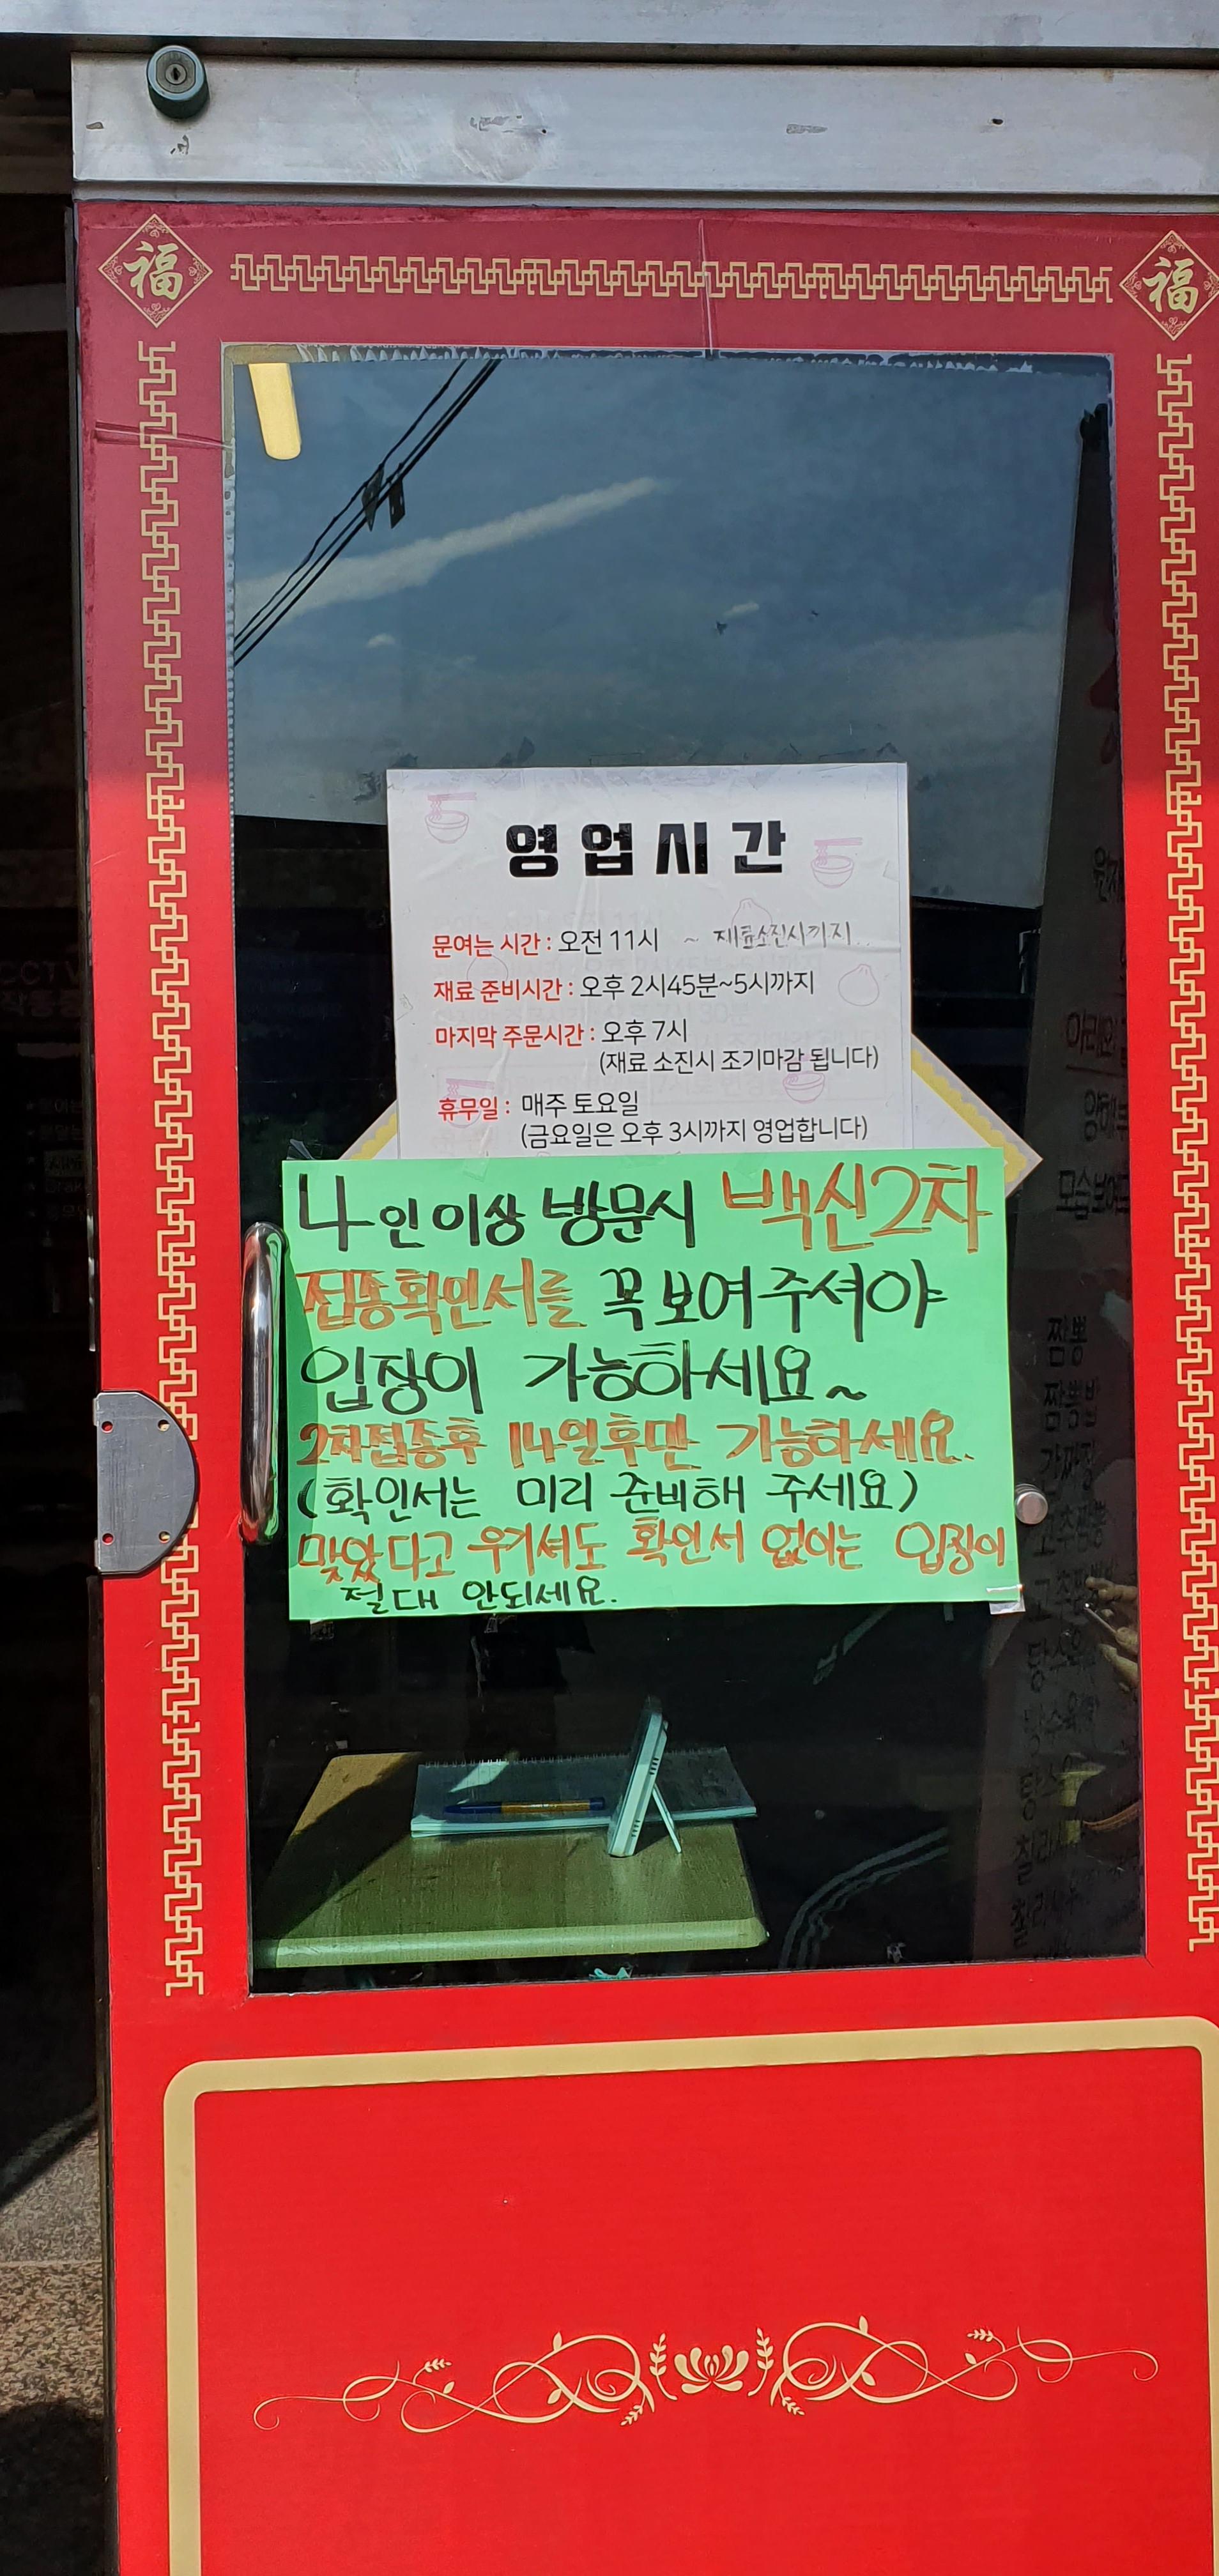 福
福
영업시간
문여는 시간 : 오전 11시 ~ 재료소진시까지..
재료 준비시간 : 오후 2시45분~5시까지
마지막 주문시간 : 오후 7시
(재료 소진시 조기마감 됩니다)
휴무일 : 매주 토요일
(금요일은 오후 3시까지 영업합니다)
4인이상 방문시 백신2차
접종확인서를 꼭 보여주셔야
입장이 가능하세요~
2차접종후 14일후만 가능하세요.
(확인서는 미리 준비해 주세요)
맞았다고 우기셔도 확인서 없이는 입장이
절대 안되세요.
CCTV
짬뽕
짬뽕밥
간짜장